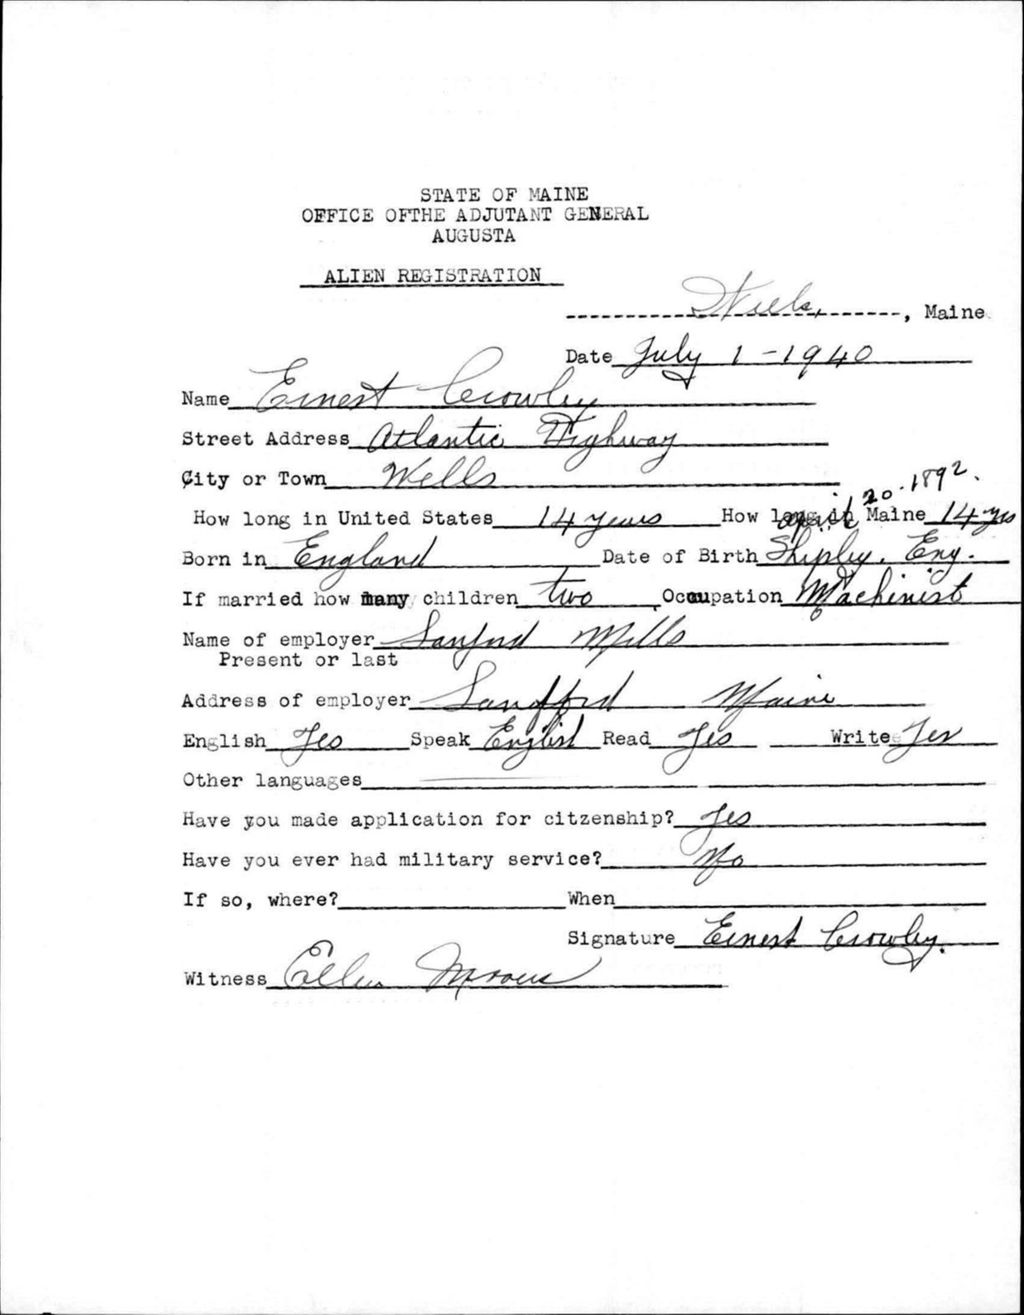 STATE OF MAINE
OFFICE OFTHE ADJUTANT GENERAL
AUGUSTA
ALIEN REGISTRATION
Wells, , Maine
Date July 1 - 1940
Name Ernest Crowley
Street Address Atlantic Highway
City or Town Wells
april 20 - 1892.
How long in United States 14 years How long in Maine 14 yrs
Born in England Date of Birth Shipley, Eng.
If married how many children two Occupation Machinist
Name of employer Sanford Mills
Present or last
Address of employer Sanfford Maine
English Yes Speak English Read Yes Write Yes
Other languages
Have you made application for citzenship? Yes
Have you ever had military service? No
If so, where? When
Signature Ernest Crowley.
Witness Ellen